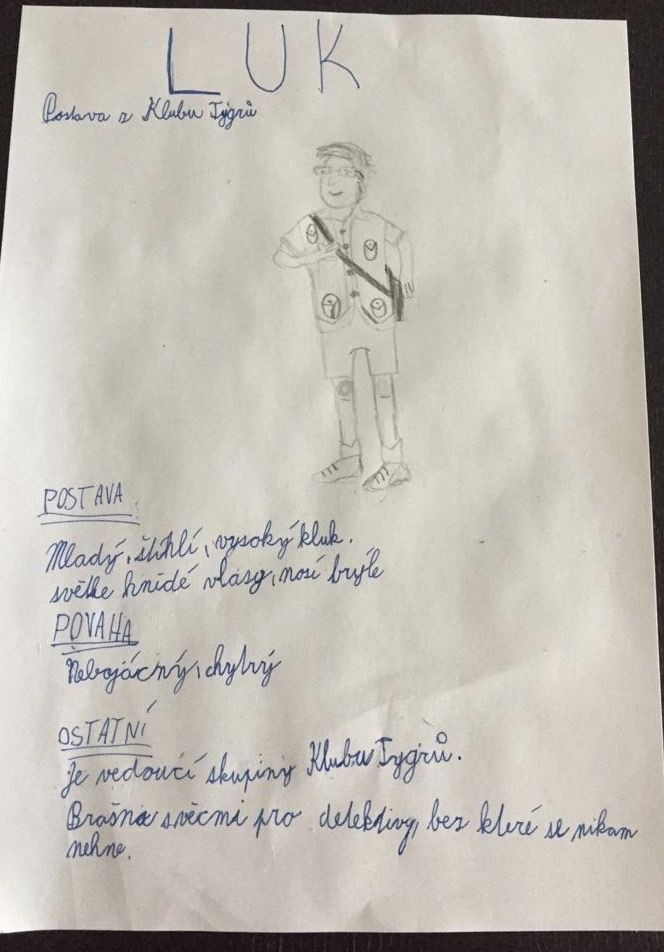 LUK
Postava z Klubu Tygrů
POSTAVA:
Mladý, štíhlí, vysoký kluk.
světle hnědé vlasy, nosí brýle
POVAHA
Nebojácný, chytrý
OSTATNÍ
Je vedoucí skupiny Klubu Tygrů.
Brašna s věcmi pro detektivy, bez které se nikam
nehne.